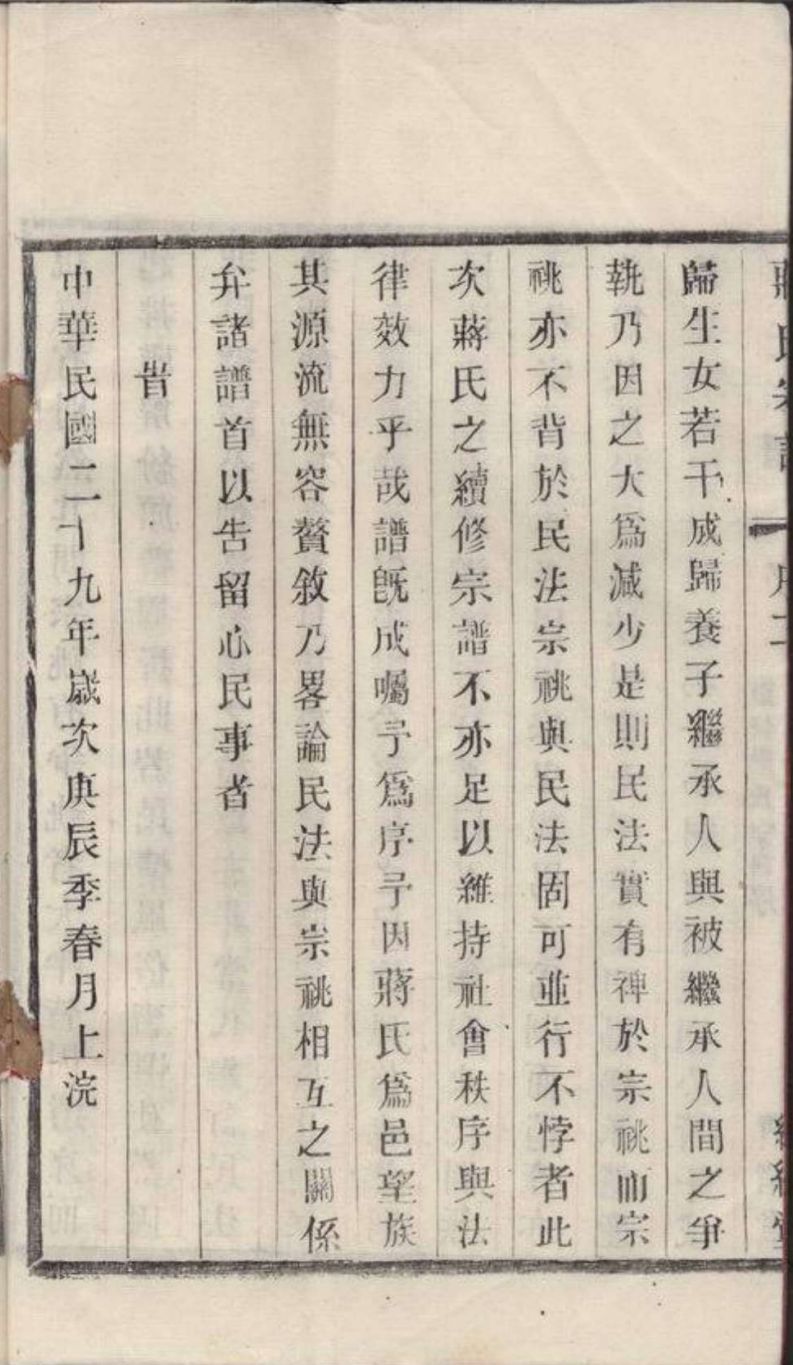 蔣氏宗譜 序二
歸生女若干成歸養子繼承人與被繼承人間之爭
執乃因之大爲減少是則民法實有裨於宗祧而宗
祧亦不背於民法宗祧與民法固可並行不悖者此
次蔣氏之續修宗譜不亦足以維持社會秩序與法
律效力乎哉譜旣成囑予爲序予因蔣氏爲邑望族
其源流無容贅敘乃畧論民法與宗祧相互之關係
弁諸譜首以告留心民事者
旹
中華民國二十九年歲次庚辰季春月上浣